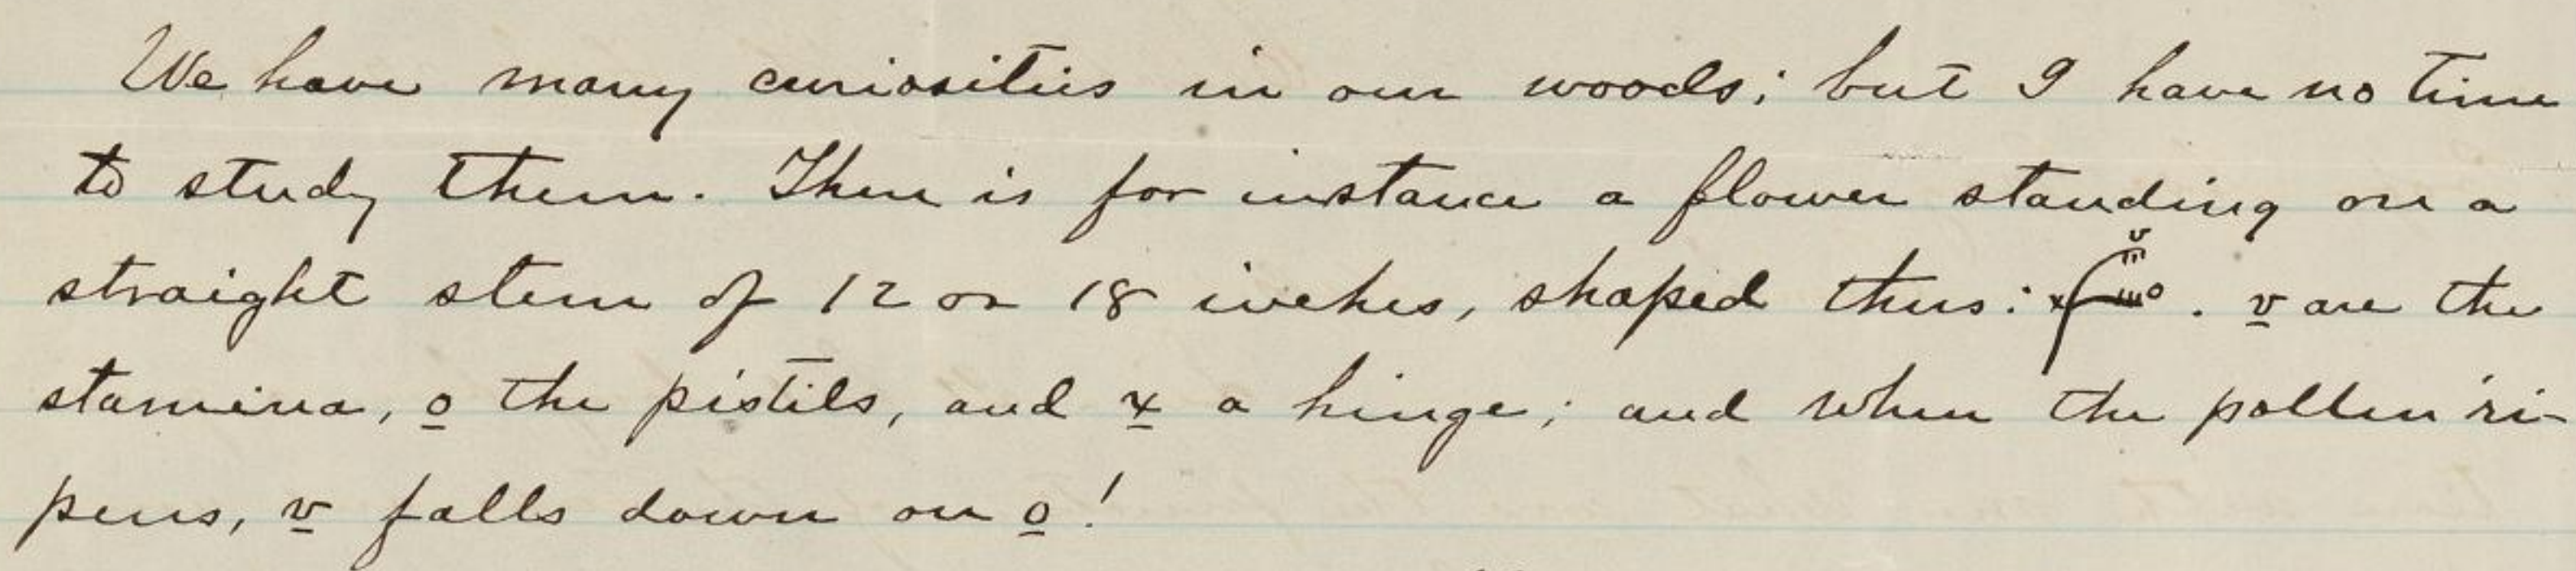 We have many curiosities in our woods; but I have no time
to study them. There is for instance a flower standing on a
straight stem of 12 or 18 inches, shaped thus: x v o. v are the
stamina, o the pistils, and x a hinge; and when the pollen ri-
pens, v falls down on o!